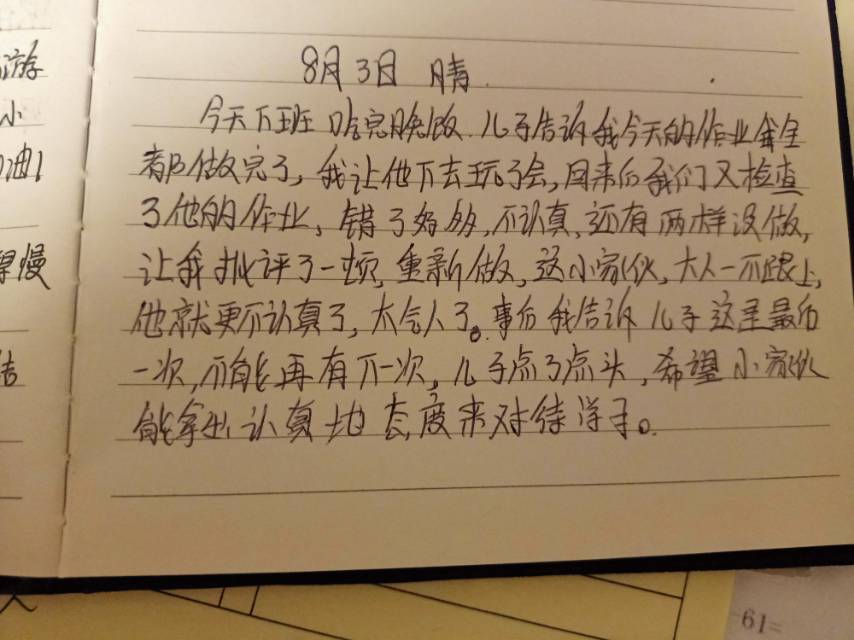 8月3日 晴
今天下班吃完晚饭.儿子告诉我今天的作业全
都做完了,我让他下去玩了会,回来后我们又检查
了他的作业,错了好多,不认真,还有两样没做,
让我批评了一顿,重新做,这小家伙,大人一不跟上,
他就更不认真了,太气人了。事后我告诉儿子这是最后
一次,不能再有下一次,儿子点了点头,希望小家伙
能拿出认真地态度来对待学习。
游
小
油!
得慢
结
61=